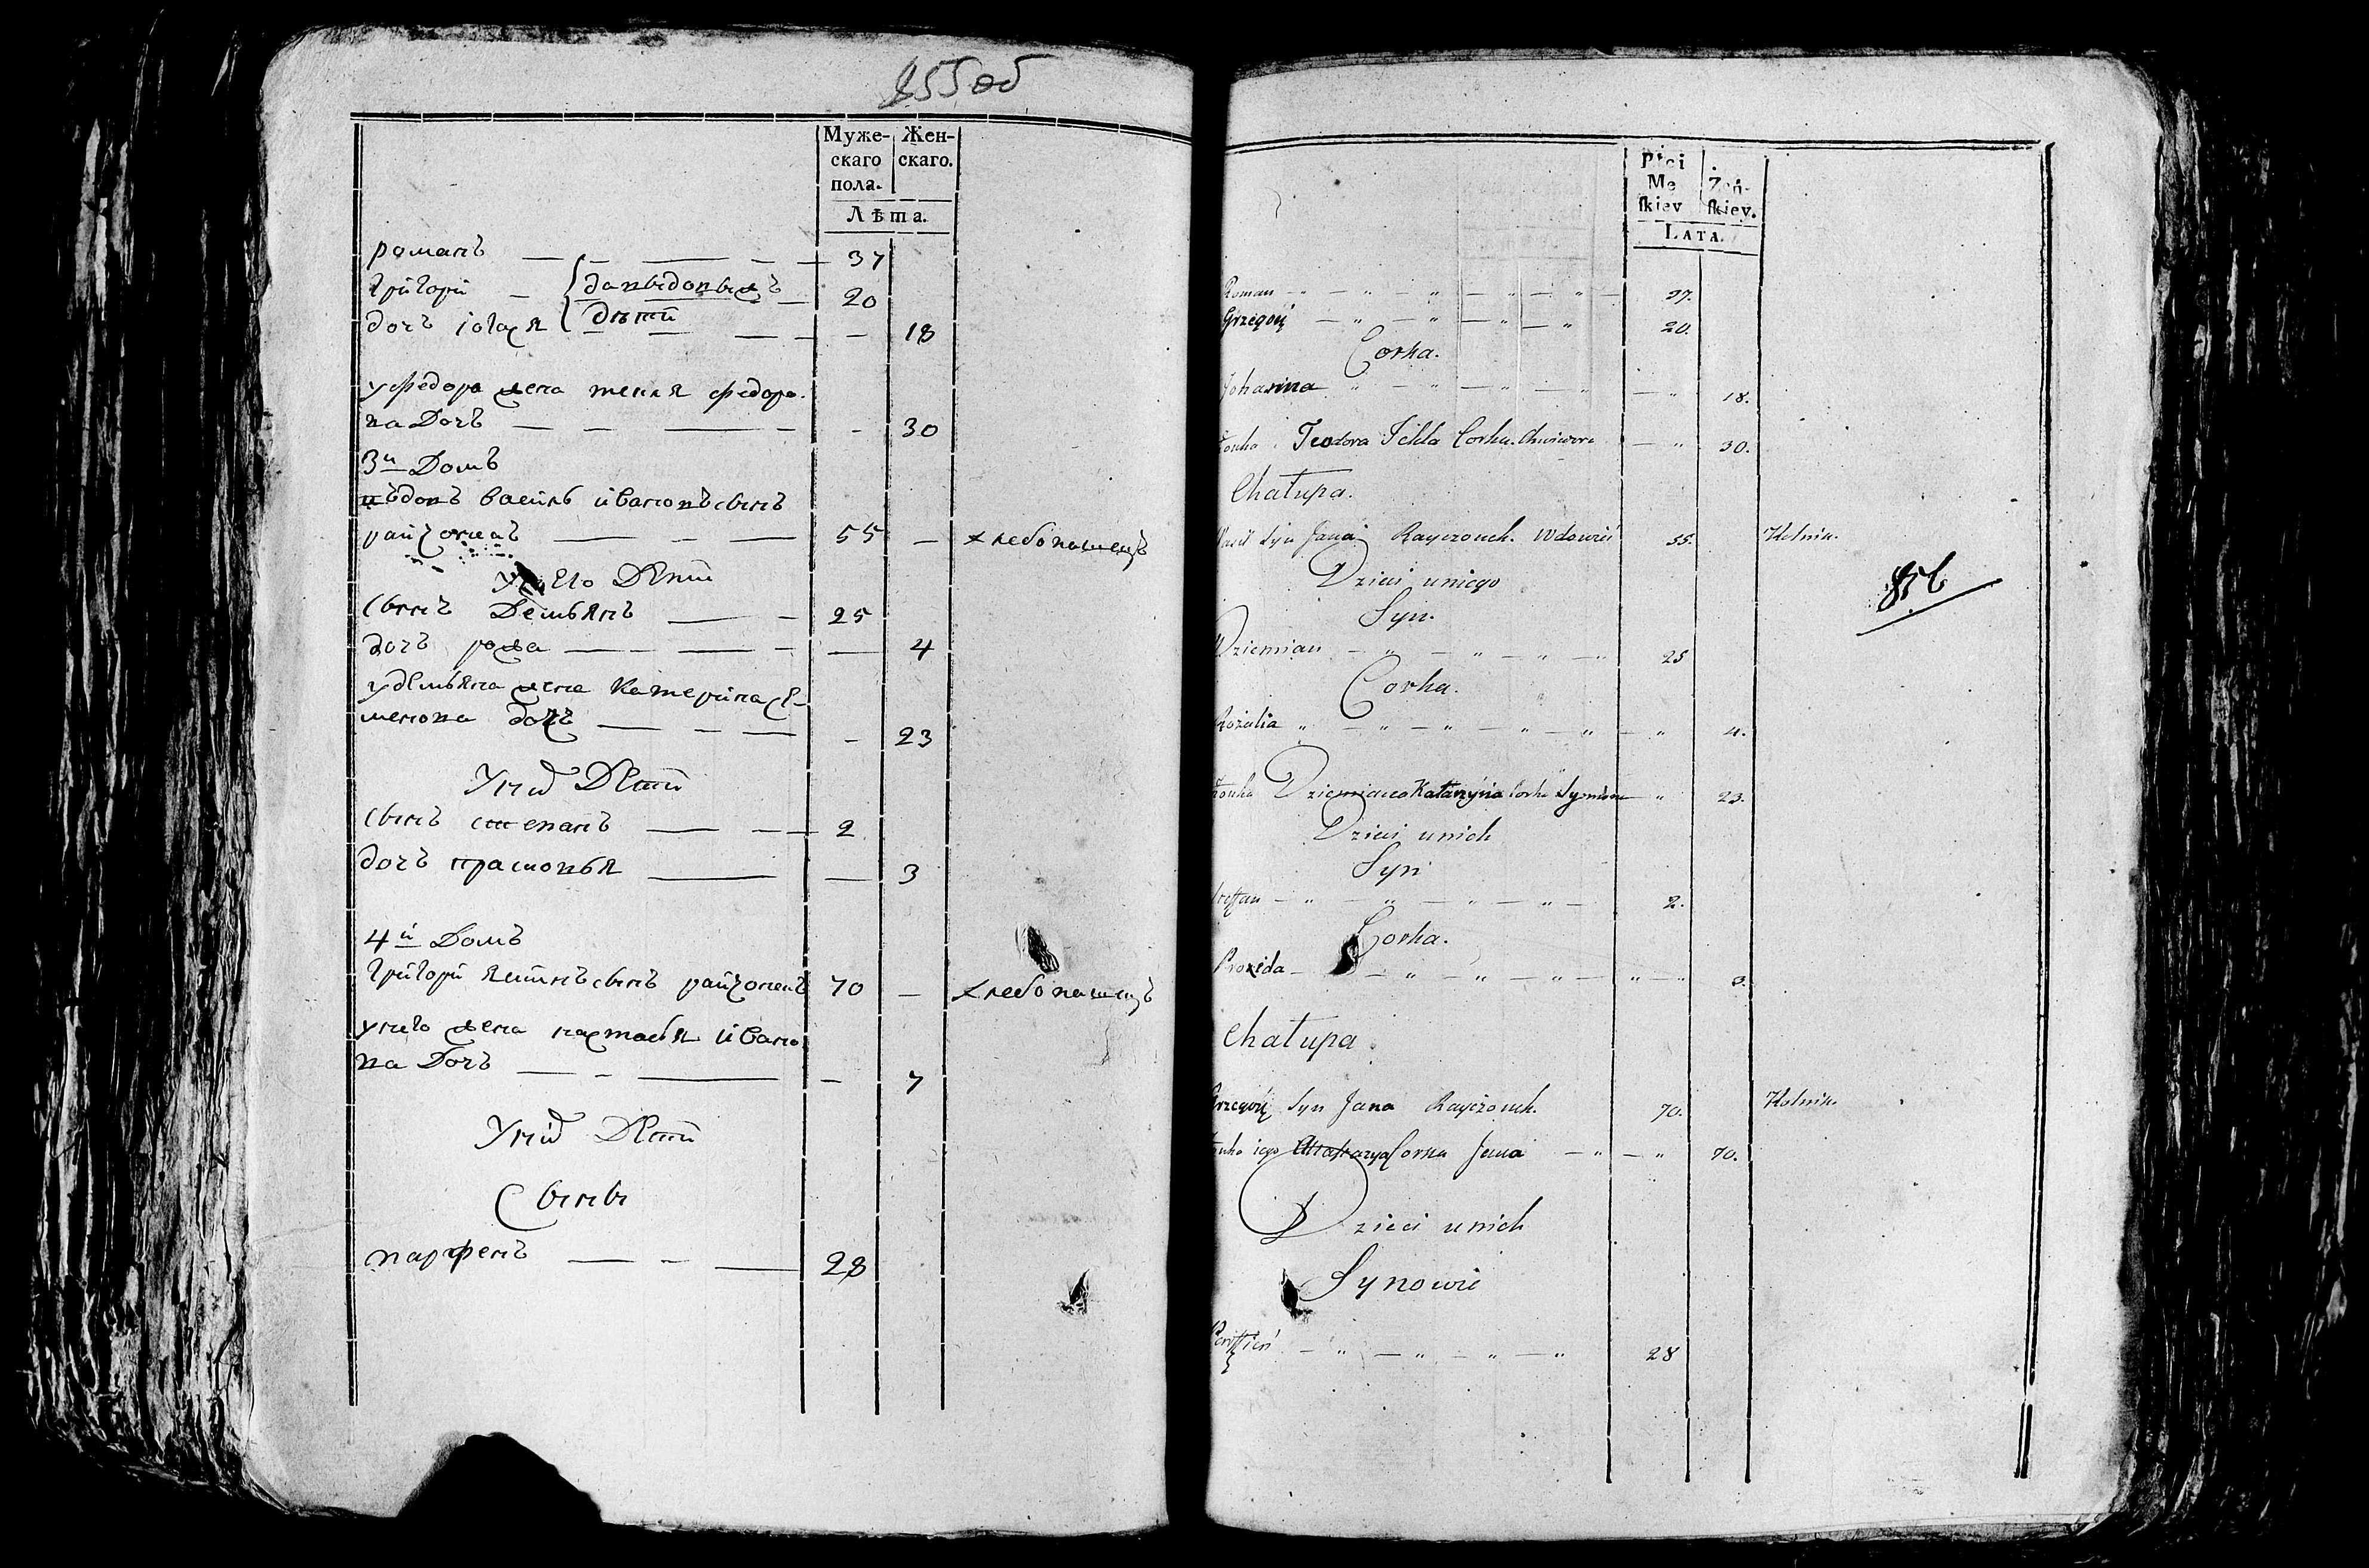 855об
Муже-
скаго
пола.
Жен-
скаго.
Лѣта.
романъ — — — — 37
григори — давыдовыхъ — 20
дочь — дѣти — — 18
уфедора жена текля федоро
ва Дочь — — — — 30
3й Домъ
вдовъ василь ивановъ сынъ
— — — 55 — хлебопашецъ
У него Дети
сынъ Демьянъ — — 25
дочь рожа — — — — 4
удемьяна жена катерина се
менова дочь — — — — 23
Уних Дети
сынъ степанъ — — 2
дочь прасковья — — 3
4й Домъ
григори сынъ 70 — хлебопашецъ
унего жена настасья ивано
ва Дочь — — — — 7
Уних Дети
Сыны
парфенъ — — — 28
Płci
Me
skiey
Żeń-
skiey.
LATA.
Roman — „ — „ — „ — „ — 37.
Grzegorz — „ — „ — „ — „ 20.
Corka.
Johanna „ — „ — „ — „ 18.
Żonka Teodora Tekla Corka — „ 30.
Chałupa.
Wasil Syn Jana Rayczonek. Wdowiec 55. Rolnik.
856
Dzieci uniego
Syn.
Dziemian — „ — „ — „ — „ 25
Corka.
Rozalia „ — „ — „ — „ — „ — „ 4.
Żonka Dziemiana Katarzyna Corka Symona — „ 23.
Dzieci unich
Syn
Steffan — „ — „ — „ — „ — 2.
Corka.
Proxida — „ — „ — „ — „ — 3.
Chałupa
Grzegorz Syn Jana Rayczonek. 70. Rolnik.
Żonka iego Corka Jana — „ — „ 70.
Dzieci unich
Synowie
— „ — „ — „ — „ 28